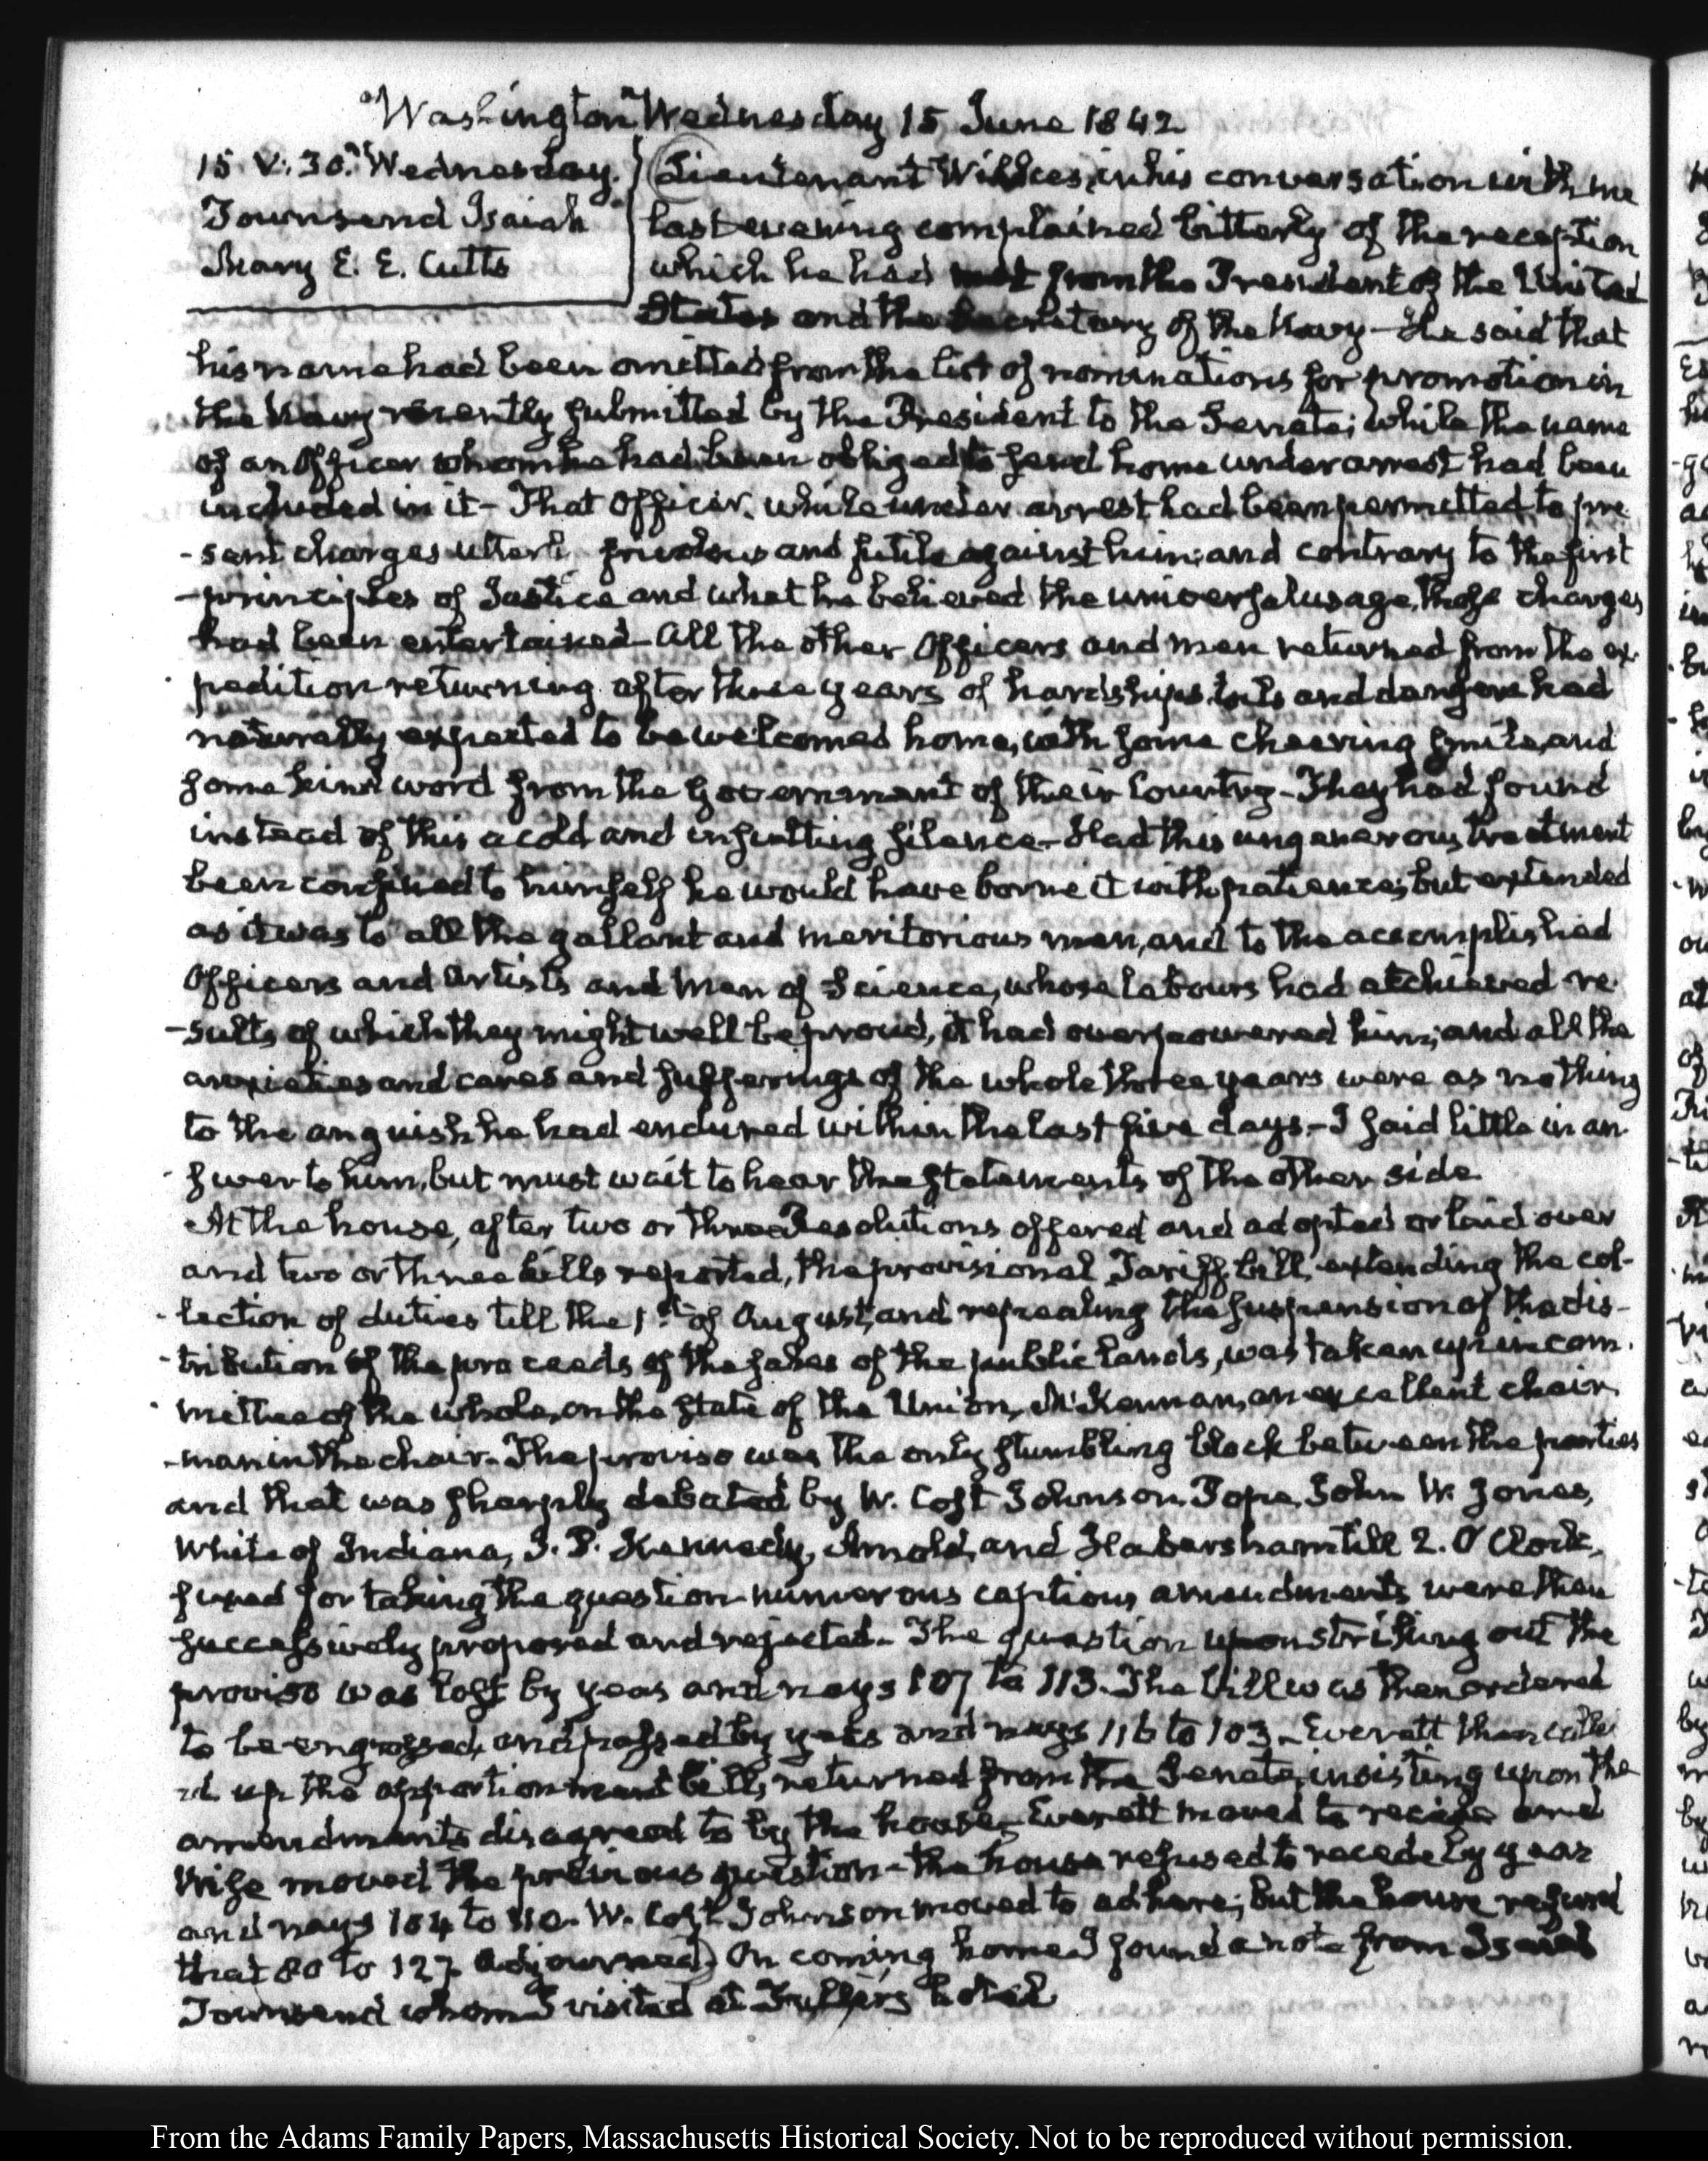 Washington Wednesday 15 June 1842
15. V:30. Wednesday.
Townsend Isaiah
Mary E. E. Cutts
Lieutenant Wilkes, in his conversation with me
last evening complained bitterly of the reception
which he had met from the President of the United
States and the Secretary of the Navy — He said that
his name had been omitted from the list of nominations for promotion in
the Navy recently submitted by the President to the Senate; while the name
of an Officer whom he had been obliged to send home under arrest had been
included in it — That Officer, while under arrest had been permitted to pre
-sent charges utterly frivolous and futile against him; and contrary to the first
-principles of Justice and what he believed the universal usage, those charges
had been entertained — All the other Officers and men returned from the ex-
pedition returning after three years of hardships toils and dangers had
naturally expected to be welcomed home, with some cheering smile, and
some kind word from the Government of their Country — They had found
instead of this a cold and insulting silence — Had this ungenerous treatment
been confined to himself he would have borne it with patience; but extended
as it was to all the gallant and meritorious men, and to the accomplished
Officers and Artists and Men of Science, whose labours had atchieved re-
-sults of which they might well be proud, it had overpowered him; and all the
anxieties and cares and sufferings of the whole three years were as nothing
to the anguish he had endured within the last five days — I said little in an-
swer to him, but must wait to hear the statements of the other side.
At the house, after two or three Resolutions offered and adopted or laid over
and two or three bills reported, the provisional Tariff bill, extending the col-
-lection of duties till the 1st. of August, and repealing the suspension of the dis-
-tribution of the proceeds of the sales of the public lands, was taken up in com-
mittee of the whole, on the state of the Union, McKennan, an excellent chair-
-man in the chair. The proviso was the only stumbling block between the parties
and that was sharply debated by W. Cost Johnson, Pope, John W. Jones,
White of Indiana, J. P. Kennedy, Arnold, and Habersham till 2. O'Clock,
fixed for taking the question numerous captious amendments were then
successively proposed and rejected. The question upon striking out the
proviso was lost by yeas and nays 107 to 113. The bill was then ordered
to be engrossed, and passed by yeas and nays 116 to 103 — Everett then call-
ed up the apportionment bill, returned from the Senate, insisting upon the
amendments disagreed to by the house — Everett moved to recede and
Wise moved the previous question — the house refused to recede by yeas
and nays 104 to 110. W. Cost Johnson moved to adhere; but the house refused
that 80 to 127. Adjourned) On coming home I found a note from Isaiah
Townsend whom I visited at Fuller's hotel
From the Adams Family Papers, Massachusetts Historical Society. Not to be reproduced without permission.